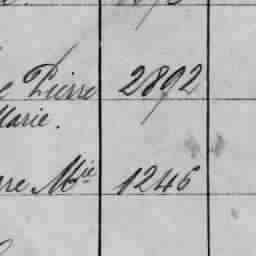 Pierre 2892
Marie.
re Mie 1246